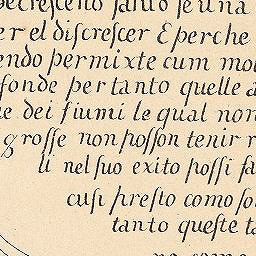 decrescēno santo se una
er el discrescer E perche
endo permixte cum mol
fonde per tanto quelle a
e dei fiumi le qual non
grosse non posson tenir r
li nel suo exito possi fa
cusi presto como so
tanto queste ta